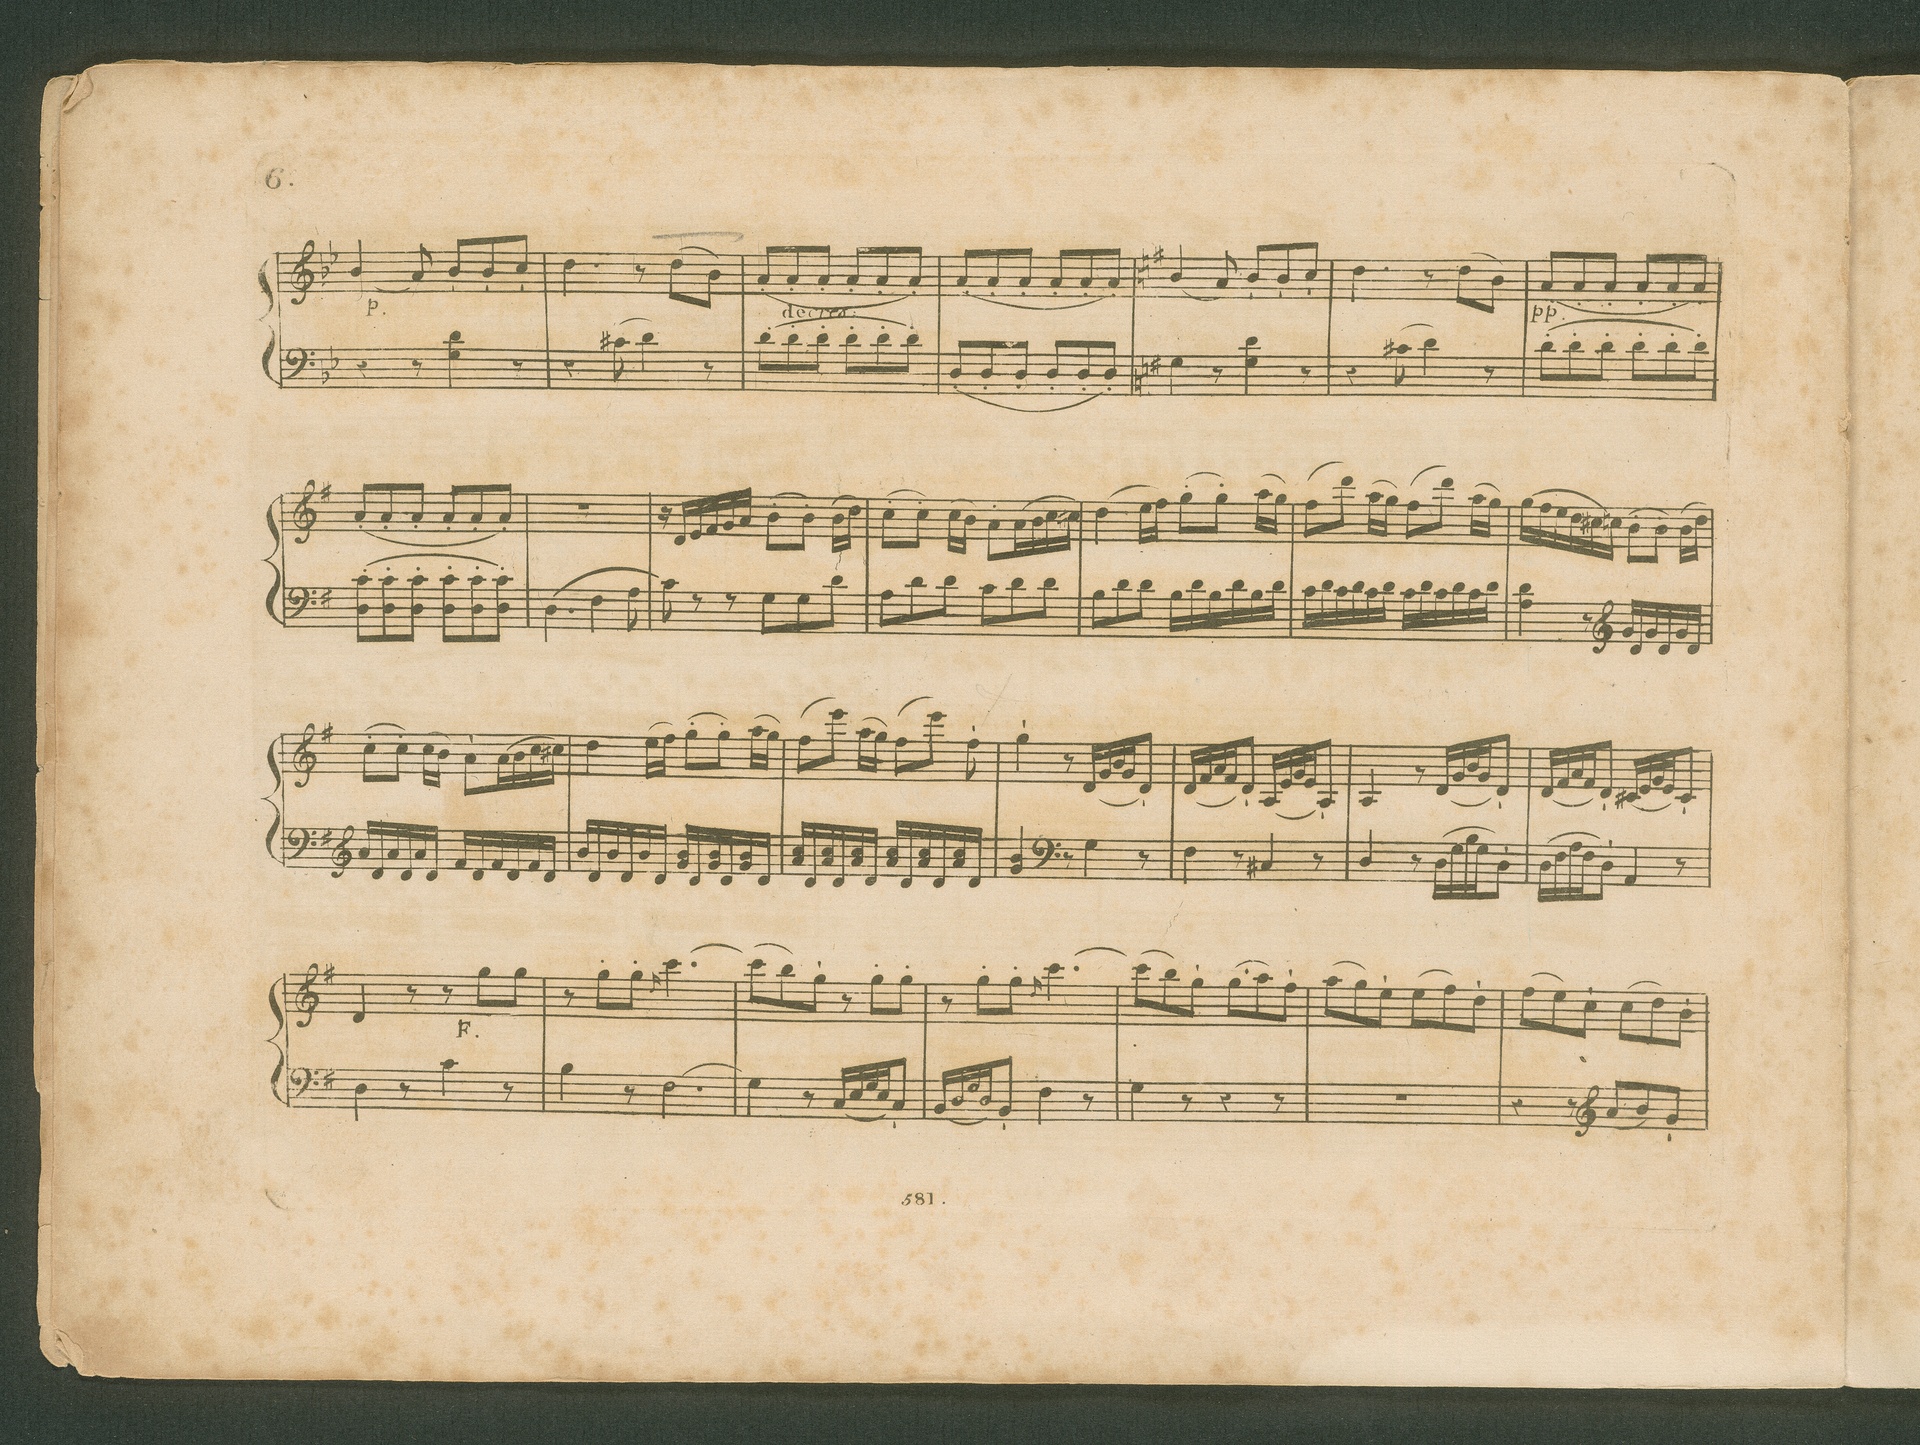 6.
p.
decres:
pp.
F.
581.